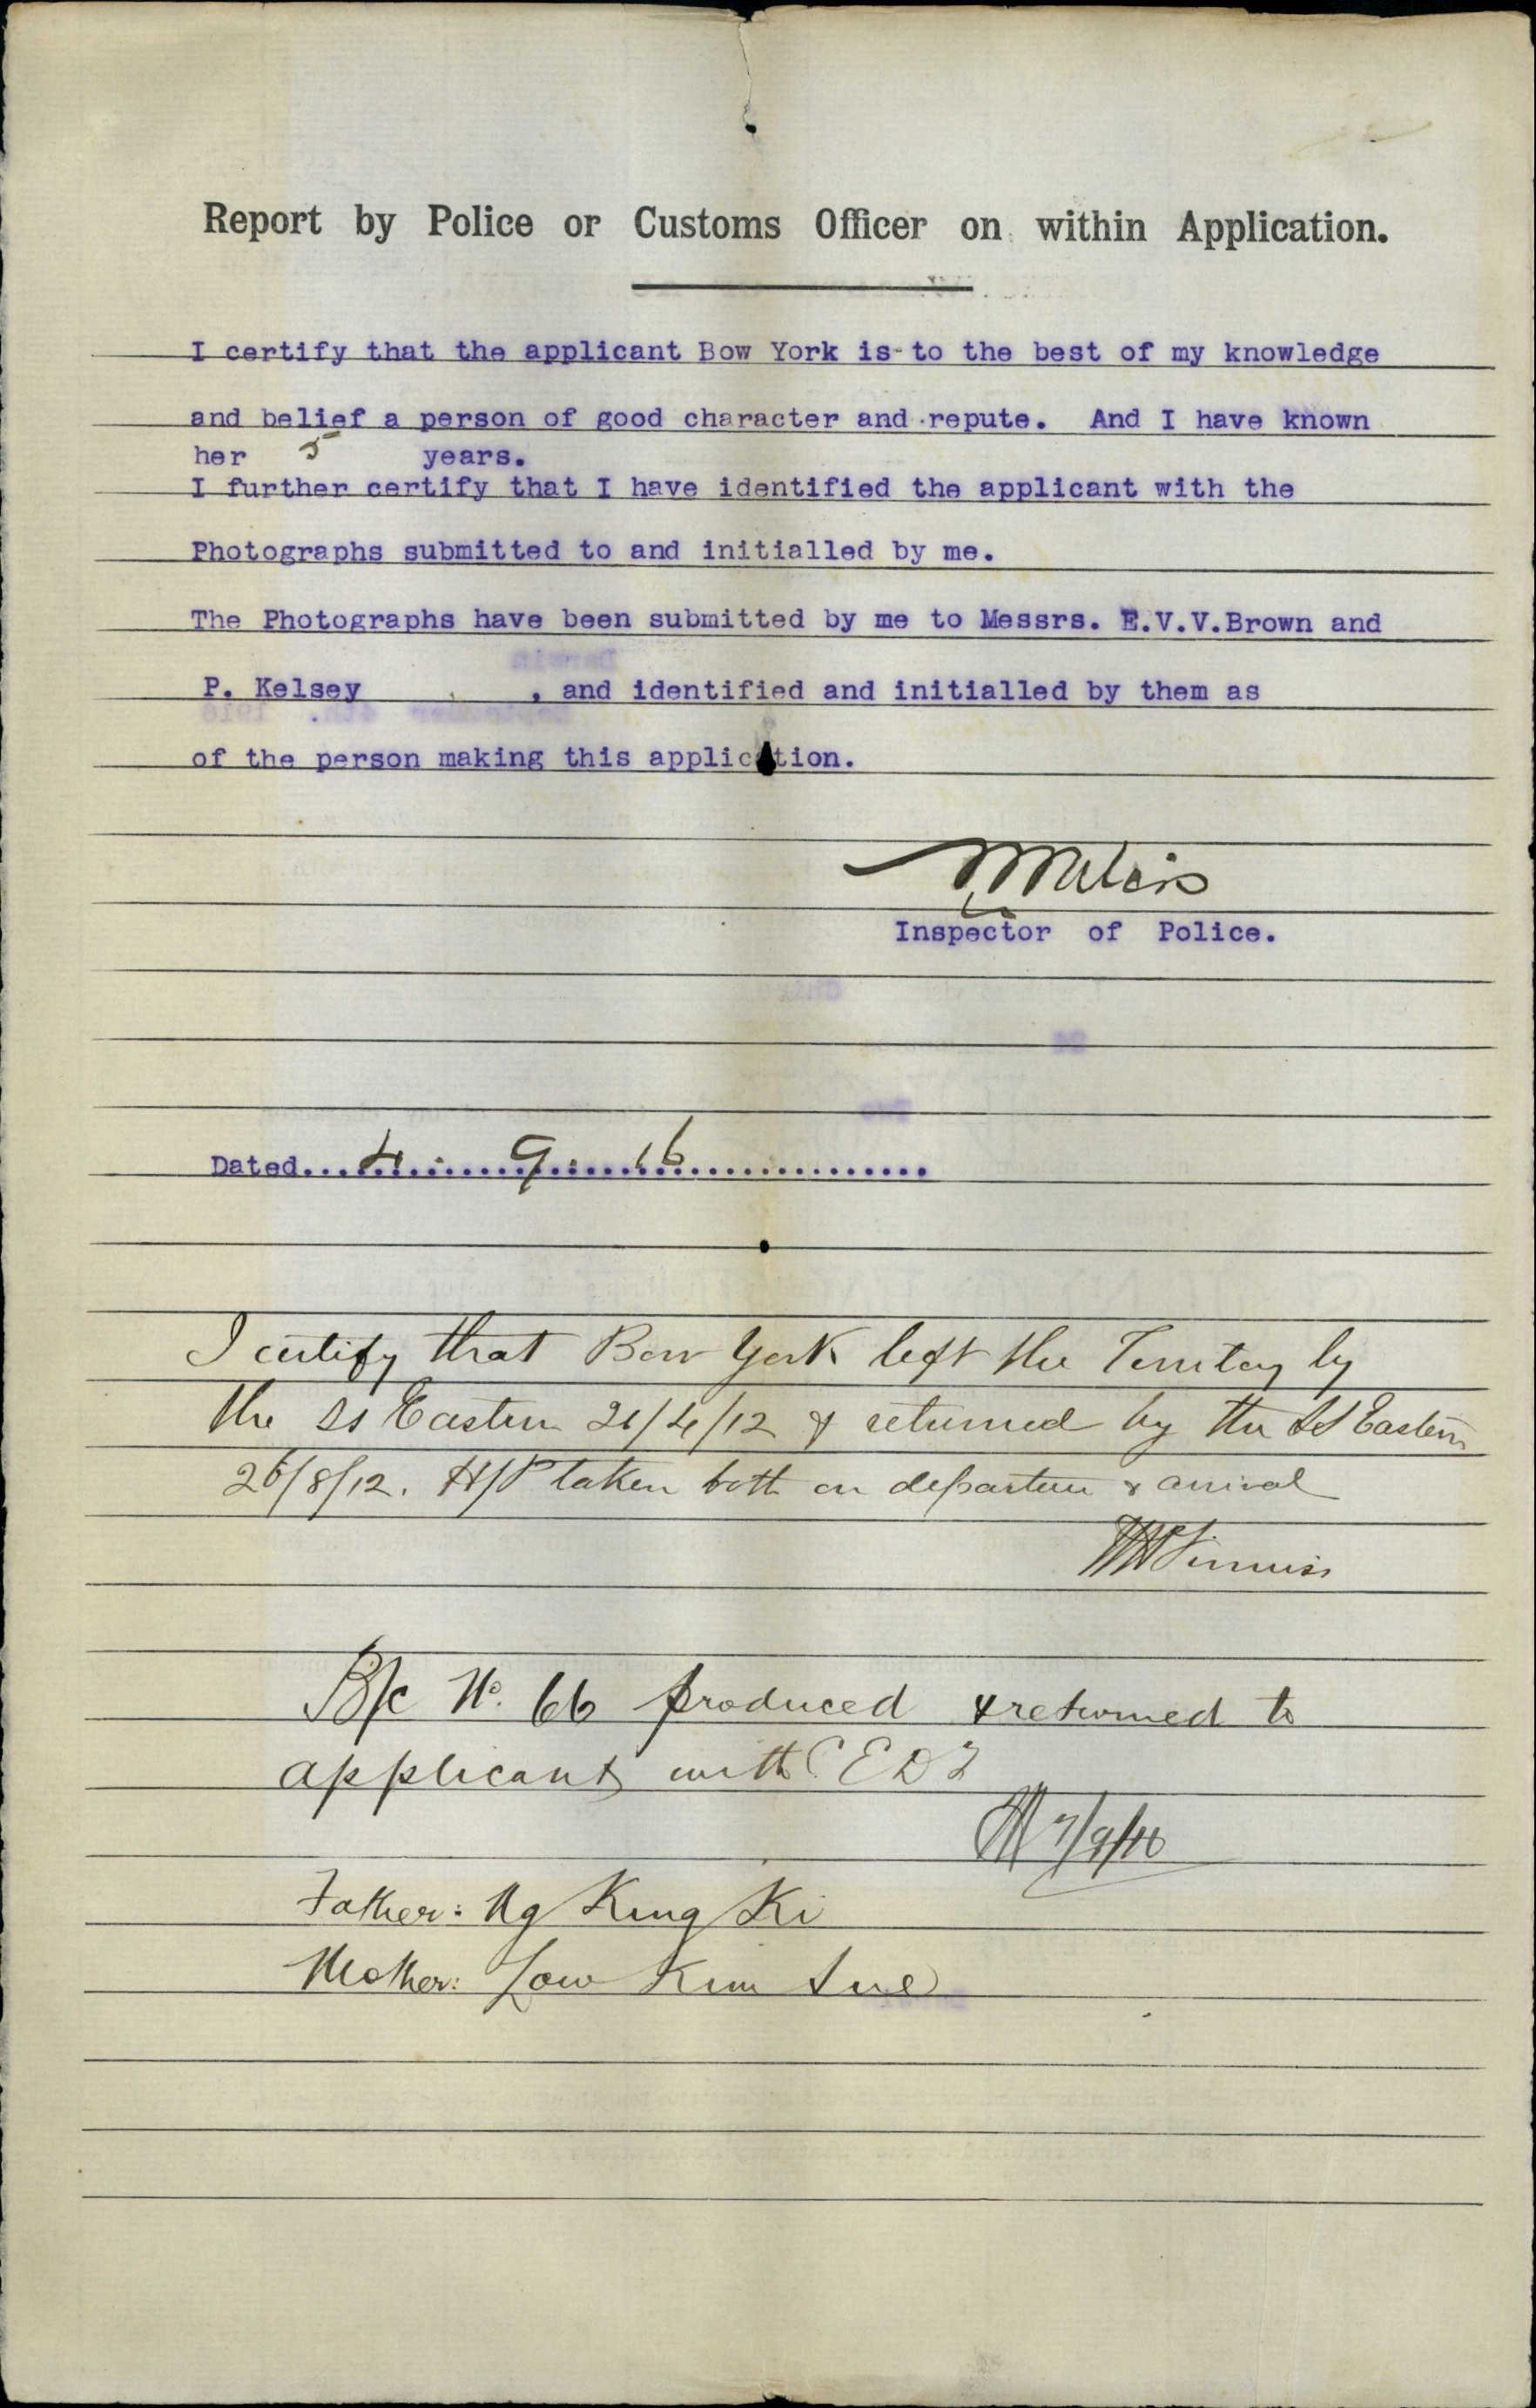 Report by Police or Customs Officer on within Application.
I certify that the applicant Bow York is to the best of my knowledge
and belief a person of good character and repute. And I have known
her 5 years.
I further certify that I have identified the applicant with the
Photographs submitted to and initialled by me.
The Photographs have been submitted by me to Messrs. E.V.V.Brown and
P. Kelsey , and identified and initialled by them as
of the person making this application.
Inspector of Police.
Dated.... 4. 9. 16
I certify that Bow York left the Territory by
the SS Eastern 21/4/12 & returned by the SS Eastern
26/8/12. H/P taken both on departure & arrival
B/c No. 66 produced & returned to
applicant with CEDT
7/9/16
Father: Ng Kung Ki
Mother: Low Kim Sue